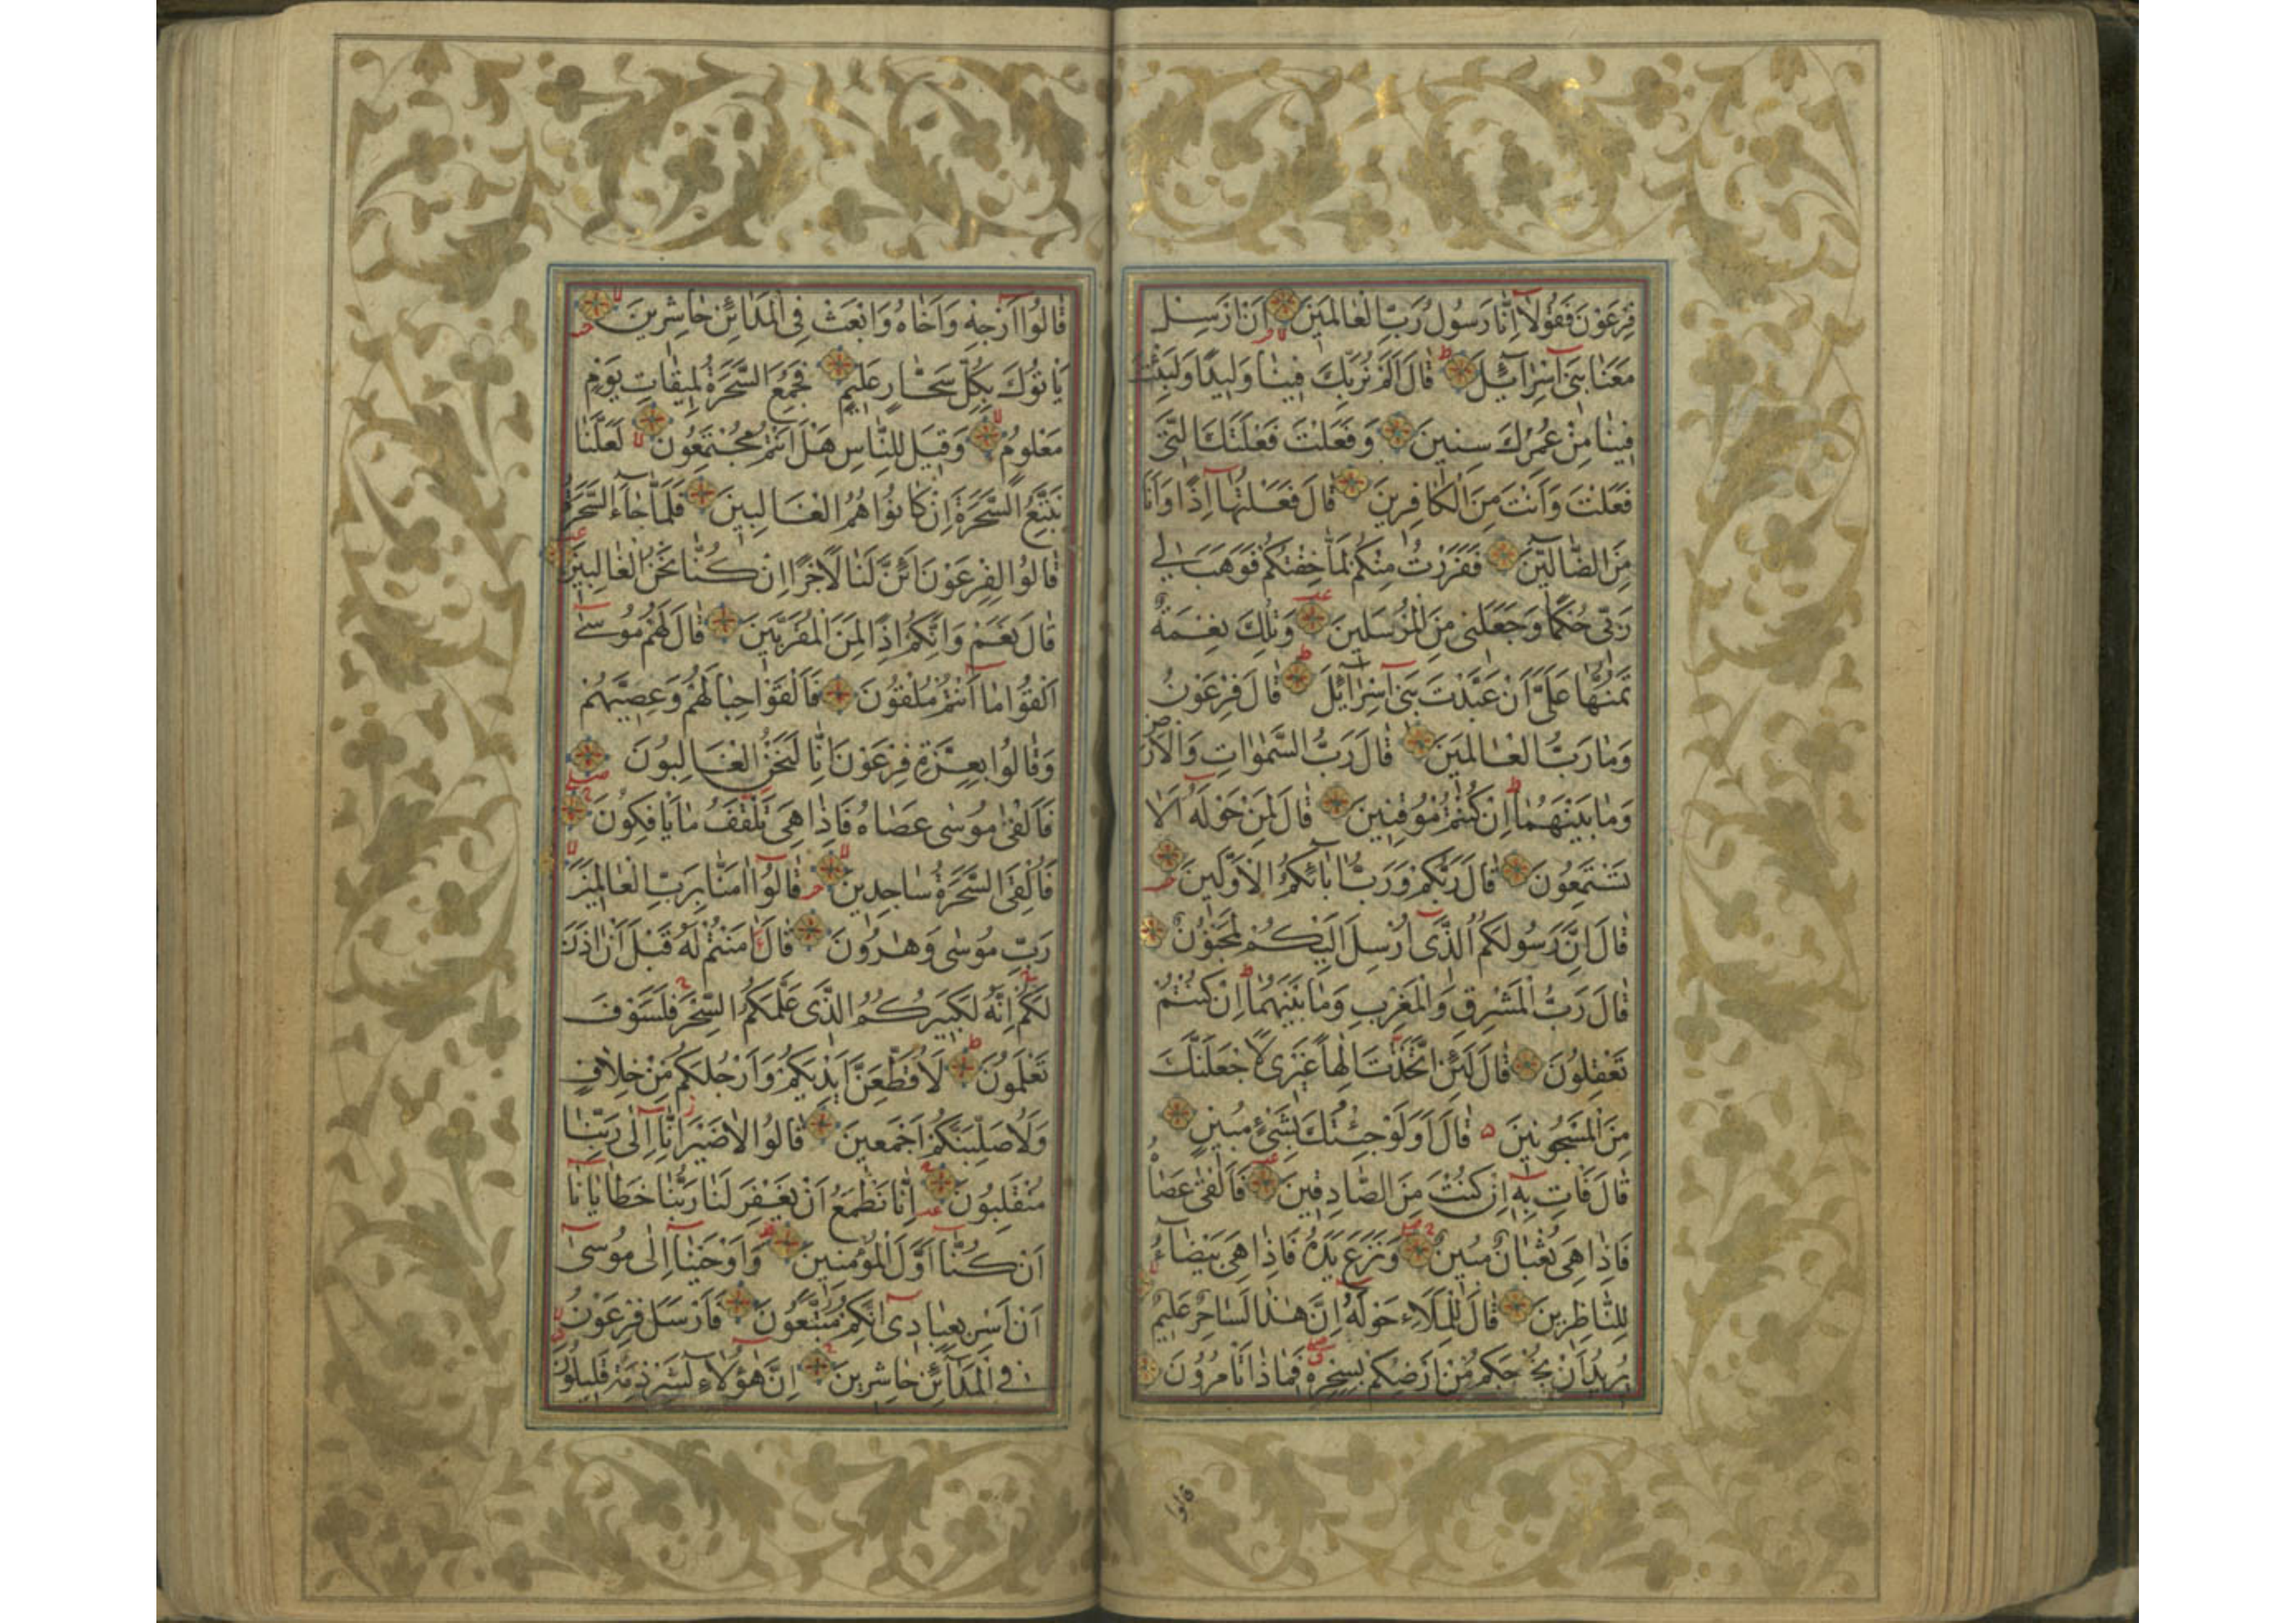 فِرْعَوْنَ فَقُولَا إِنَّا رَسُولُ رَبِّ الْعَالَمِينَ أَنْ أَرْسِلْ
مَعَنَا بَنِي إِسْرَآئِيلَ قَالَ أَلَمْ نُرَبِّكَ فِينَا وَلِيدًا وَلَبِثْتَ
فِينَا مِنْ عُمُرِكَ سِنِينَ وَفَعَلْتَ فَعْلَتَكَ الَّتِي
فَعَلْتَ وَأَنْتَ مِنَ الْكَافِرِينَ قَالَ فَعَلْتُهَا إِذًا وَأَنَا
مِنَ الضَّالِّينَ فَفَرَرْتُ مِنْكُمْ لَمَّا خِفْتُكُمْ فَوَهَبَ لِي
رَبِّي حُكْمًا وَجَعَلَنِي مِنَ الْمُرْسَلِينَ وَتِلْكَ نِعْمَةٌ
تَمُنُّهَا عَلَيَّ أَنْ عَبَّدْتَ بَنِي إِسْرَآئِلَ قَالَ فِرْعَوْنُ
وَمَا رَبُّ الْعَالَمِينَ قَالَ رَبُّ السَّمٰوَاتِ وَالْأَرْضِ
وَمَا بَيْنَهُمَا إِنْ كُنْتُمْ مُوقِنِينَ قَالَ لِمَنْ حَوْلَهُ أَلَا
تَسْتَمِعُونَ قَالَ رَبُّكُمْ وَرَبُّ آبَائِكُمُ الْأَوَّلِينَ
قَالَ إِنَّ رَسُولَكُمُ الَّذِي أُرْسِلَ إِلَيْكُمْ لَمَجْنُونٌ
قَالَ رَبُّ الْمَشْرِقِ وَالْمَغْرِبِ وَمَا بَيْنَهُمَا إِنْ كُنْتُمْ
تَعْقِلُونَ قَالَ لَئِنِ اتَّخَذْتَ إِلٰهًا غَيْرِي لَأَجْعَلَنَّكَ
مِنَ الْمَسْجُونِينَ قَالَ أَوَلَوْ جِئْتُكَ بِشَيْءٍ مُبِينٍ
قَالَ فَأْتِ بِهِ إِنْ كُنْتَ مِنَ الصَّادِقِينَ فَأَلْقٰى عَصَاهُ
فَإِذَا هِيَ ثُعْبَانٌ مُبِينٌ وَنَزَعَ يَدَهُ فَإِذَا هِيَ بَيْضَآءُ
لِلنَّاظِرِينَ قَالَ لِلْمَلَاءِ حَوْلَهُ إِنَّ هٰذَا لَسَاحِرٌ عَلِيمٌ
يُرِيدُ أَنْ يُخْرِجَكُمْ مِنْ أَرْضِكُمْ بِسِحْرِهِ فَمَاذَا تَأْمُرُونَ
قَالُوا أَرْجِهْ وَأَخَاهُ وَابْعَثْ فِي الْمَدَائِنِ حَاشِرِينَ
يَأْتُوكَ بِكُلِّ سَحَّارٍ عَلِيمٍ فَجُمِعَ السَّحَرَةُ لِمِيقَاتِ يَوْمٍ
مَعْلُومٍ وَقِيلَ لِلنَّاسِ هَلْ أَنْتُمْ مُجْتَمِعُونَ لَعَلَّنَا
نَتَّبِعُ السَّحَرَةَ إِنْ كَانُوا هُمُ الْغَالِبِينَ فَلَمَّا جَآءَ السَّحَرَةُ
قَالُوا لِفِرْعَوْنَ أَئِنَّ لَنَا لَأَجْرًا إِنْ كُنَّا نَحْنُ الْغَالِبِينَ
قَالَ نَعَمْ وَإِنَّكُمْ إِذًا لَمِنَ الْمُقَرَّبِينَ قَالَ لَهُمْ مُوسٰى
أَلْقُوا مَا أَنْتُمْ مُلْقُونَ فَأَلْقَوْا حِبَالَهُمْ وَعِصِيَّهُمْ
وَقَالُوا بِعِزَّةِ فِرْعَوْنَ إِنَّا لَنَحْنُ الْغَالِبُونَ
فَأَلْقٰى مُوسٰى عَصَاهُ فَإِذَا هِيَ تَلْقَفُ مَا يَأْفِكُونَ
فَأُلْقِيَ السَّحَرَةُ سَاجِدِينَ قَالُوا آمَنَّا بِرَبِّ الْعَالَمِينَ
رَبِّ مُوسٰى وَهٰرُونَ قَالَ ءَامَنْتُمْ لَهُ قَبْلَ أَنْ آذَنَ
لَكُمْ إِنَّهُ لَكَبِيرُكُمُ الَّذِي عَلَّمَكُمُ السِّحْرَ فَلَسَوْفَ
تَعْلَمُونَ لَأُقَطِّعَنَّ أَيْدِيَكُمْ وَأَرْجُلَكُمْ مِنْ خِلَافٍ
وَلَأُصَلِّبَنَّكُمْ أَجْمَعِينَ قَالُوا لَا ضَيْرَ إِنَّا إِلٰى رَبِّنَا
مُنْقَلِبُونَ إِنَّا نَطْمَعُ أَنْ يَغْفِرَ لَنَا رَبُّنَا خَطَايَانَا
أَنْ كُنَّا أَوَّلَ الْمُؤْمِنِينَ وَأَوْحَيْنَا إِلٰى مُوسٰى
أَنْ أَسْرِ بِعِبَادِي إِنَّكُمْ مُتَّبَعُونَ فَأَرْسَلَ فِرْعَوْنُ
فِي الْمَدَآئِنِ حَاشِرِينَ إِنَّ هٰؤُلَاءِ لَشِرْذِمَةٌ قَلِيلُونَ